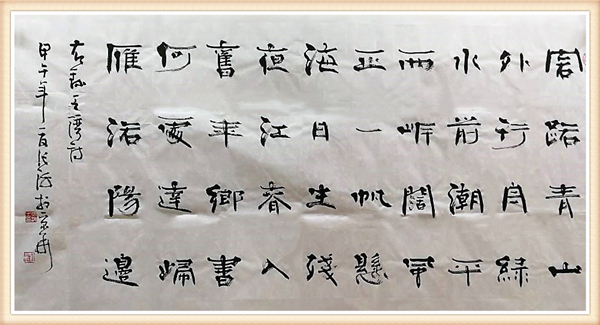 客路青山
外行舟綠
水前潮平
兩岸闊風
正一帆懸
海日生殘
夜江春入
舊年鄉書
何處達歸
雁洛陽邊
右錄王灣詩
甲午年